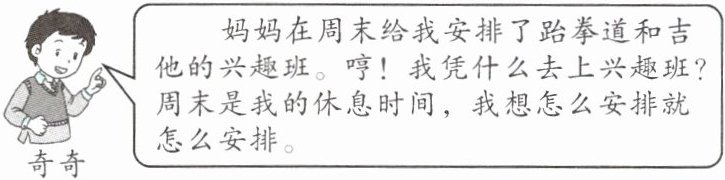 妈妈在周末给我安排了跆拳道和吉
他的兴趣班。哼！我凭什么去上兴趣班？
周末是我的休息时间，我想怎么安排就
怎么安排。
奇奇